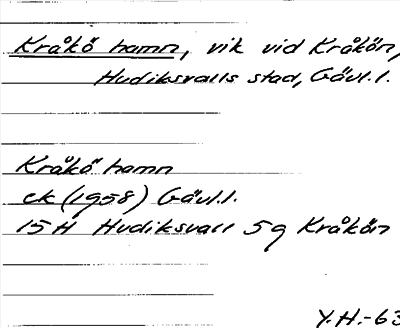 Kråkö hamn, vik vid Kråkön,
Hudiksvalls stad, Gävl.l.
Kråkö hamn
ek (1958) Gävl.l.
15H Hudiksvall 5g Kråkön
Y.H.-63